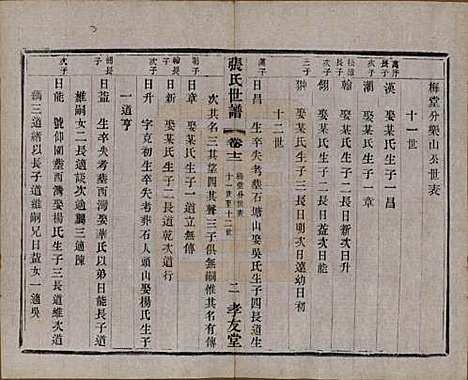 梅堂分樂山公世表
十一世
漢 娶某氏生子一昌
潮 娶某氏生子一章
長子 翰 娶某氏生子二長日新次日升
次子 翎 娶某氏生子二長日益次日能
三子 翀 娶某氏生子三長日明次日達幼日初
十二世
子 日昌 生卒失考葬石塘山娶吳氏生子四長道生
次其名三其望四其聲三子俱無嗣惟其名有傳
張氏世譜 卷十二 梅堂分世表 十一世至十二世 二 孝友堂
子 日章 娶某氏生子一道行
長子 日新 娶某氏生子二長道乾次道
次子 日升 字克初生卒失考葬石人頭山娶楊氏生子
一道亨
長子 日益 生卒失考葬西灣娶華氏以弟日能長子道
維嗣女二長適談次適龔三適陳
次子 日能 號仰園葬西灣娶楊氏生子三長道維次道
三道緒以長子道維嗣兄日益女一適吳